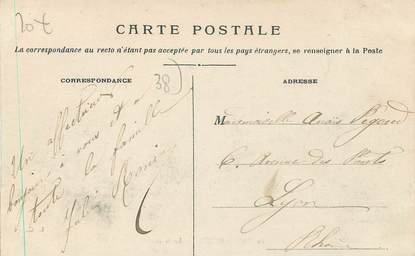 20t
CARTE POSTALE
La correspondance au recto n'étant pas acceptée par tous les pays étrangers, se renseigner à la Poste
38)
CORRESPONDANCE
ADRESSE
Un affectueux
bonjour à vous et à
toute la famille
Mademoiselle Anaïs
6. Avenue des Ponts
Lyon
Rhône